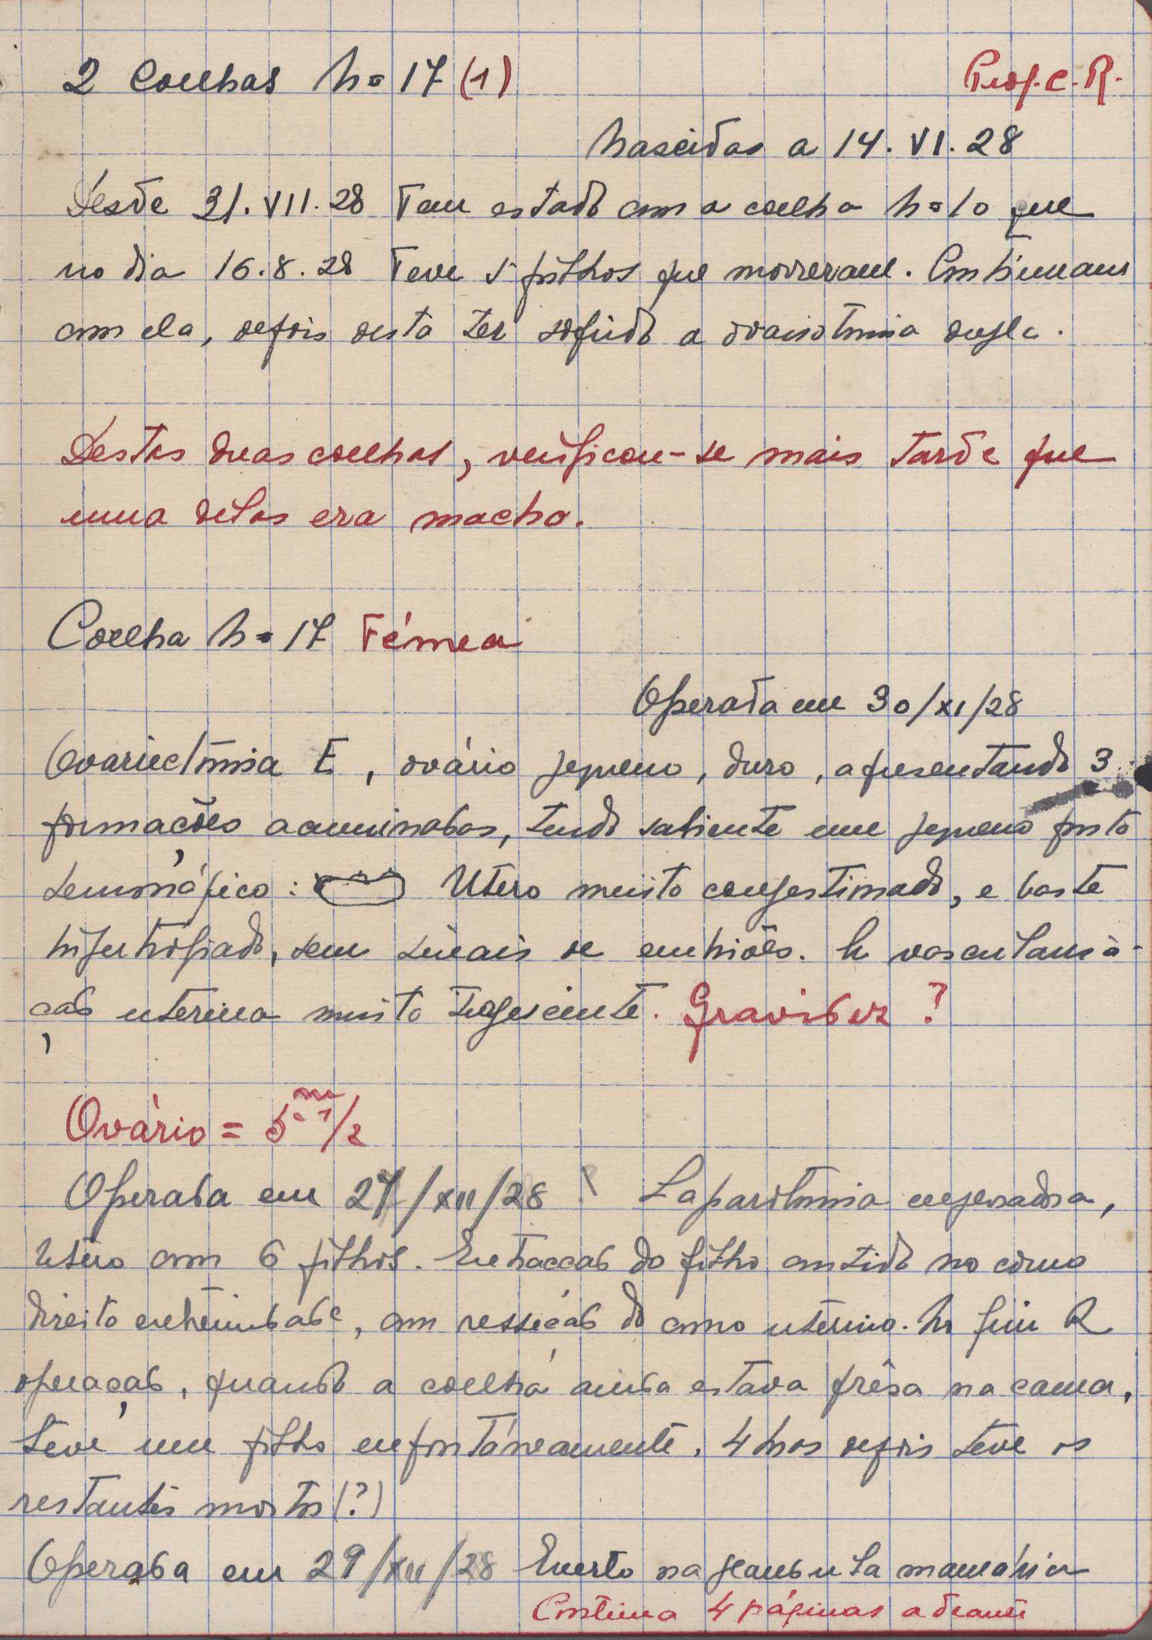 2 Coelhas Nº 17 (1) Prof. C. R.
Nascidas a 14. VI. 28
Desde 31. VII. 28 tem estado com a coelha Nº 10 que
no dia 16. 8. 28 teve 5 filhos que morreram. Continuam
com ela, depois desta ter sofrido a ovariotomia dupla.
Destas duas coelhas, verificou-se mais tarde que
uma delas era macho.
Coelha Nº 17 Fémea
Operada em 30/XI/28
Ovariectomia E, ovário pequeno, duro, apresentando 3
formações acuminadas, tendo saliente um pequeno ponto
hemorrágico: Utero muito congestionado, e baste
hipertrofiado, sem sinais de embriões. A vascularisa-
ção uterina muito turgescente. Gravidez ?
Ovário = 5 m 1/2
Operada em 27/XII/28 Laparotomia exploradora,
Utero com 6 filhos. Extracção do filho contido no corno
direito extremidade, com ressecção do corno uterino. No fim da
operação, quando a coelha ainda estava prêsa na cama,
teve um filho espontâneamente. 4 horas depois teve os
restantes mortos (?)
Operada em 29/XII/28 Enxerto na glandula mamária
Continua 4 páginas adiante